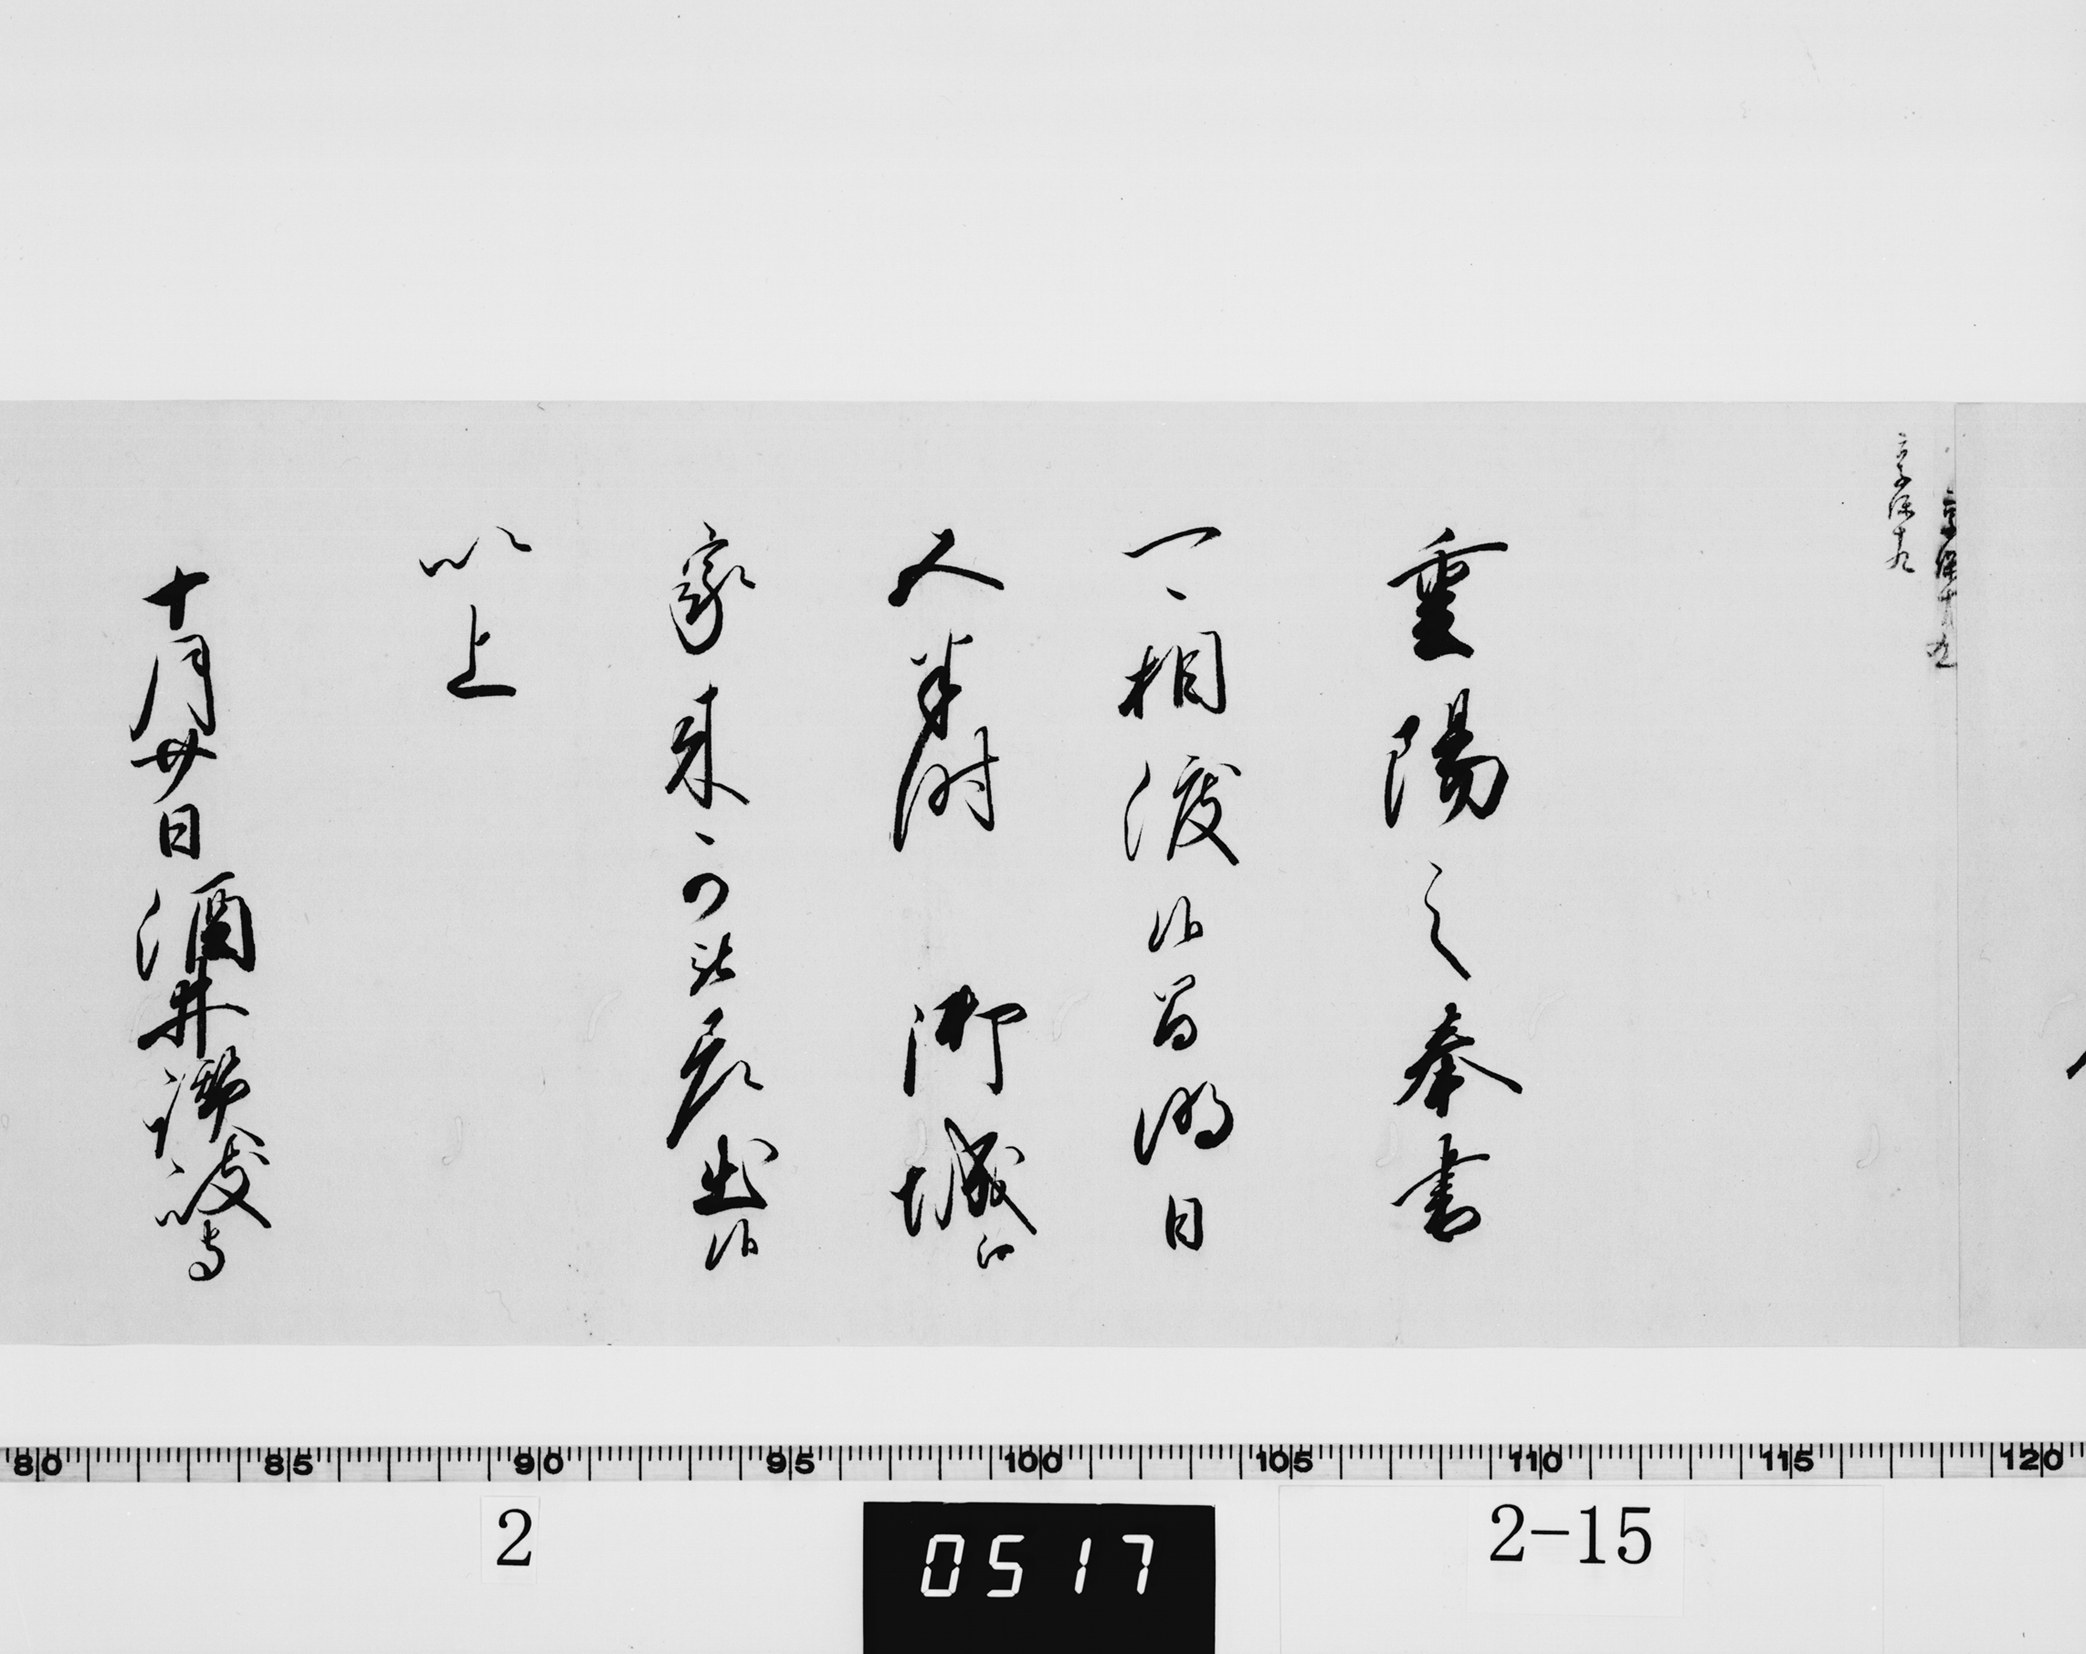 享保十九
享保九
重陽之奉書
一、相渡候間明日
人半時 御城江
家来可被差出候
以上
十月廿日 酒井讃岐守
80 85 90 95 100 105 110 115 120
2
0517
2-15